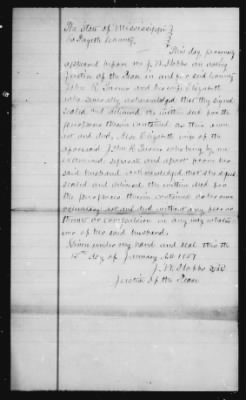 The State of Mississippi }
La Fayette County }
This day personally
appeared before me J. W. Hopkins an acting
Justice of the Peace in and for said County
John R. and his wife Elizabeth
who severally acknowledged that they signed
sealed and delivered the within deed for
the purposes therein contained as their own
act and deed, Also Elizabeth wife of the
aforesaid John R. who being by me
examined separate and apart from her
said husband acknowledged that she signed
sealed and delivered the within deed for
the purposes therein contained as her own
voluntary act and deed without any fear or
threat or compulsion in any way
of her said husband.
Given under my hand and seal this the
15th day of January AD 1857
J. W.
Justice of the Peace